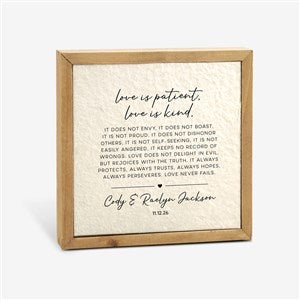 love is patient,
love is kind.
IT DOES NOT ENVY, IT DOES NOT BOAST,
IT IS NOT PROUD. IT DOES NOT DISHONOR
OTHERS, IT IS NOT SELF-SEEKING, IT IS NOT
EASILY ANGERED, IT KEEPS NO RECORD OF
WRONGS. LOVE DOES NOT DELIGHT IN EVIL
BUT REJOICES WITH THE TRUTH. IT ALWAYS
PROTECTS, ALWAYS TRUSTS, ALWAYS HOPES,
ALWAYS PERSEVERES. LOVE NEVER FAILS.
Cody & Raelyn Jackson
11.12.26